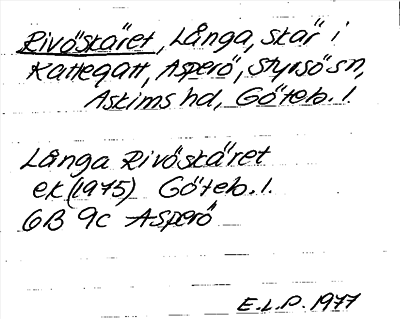 Rivöskäret, Långa, skär i
Kattegatt, Asperö, Styrsö sn,
Askims hd, Göteb. l.
Långa Rivöskäret
ek (1975) Göteb. l.
6B 9c Asperö
E.L.P. 1977